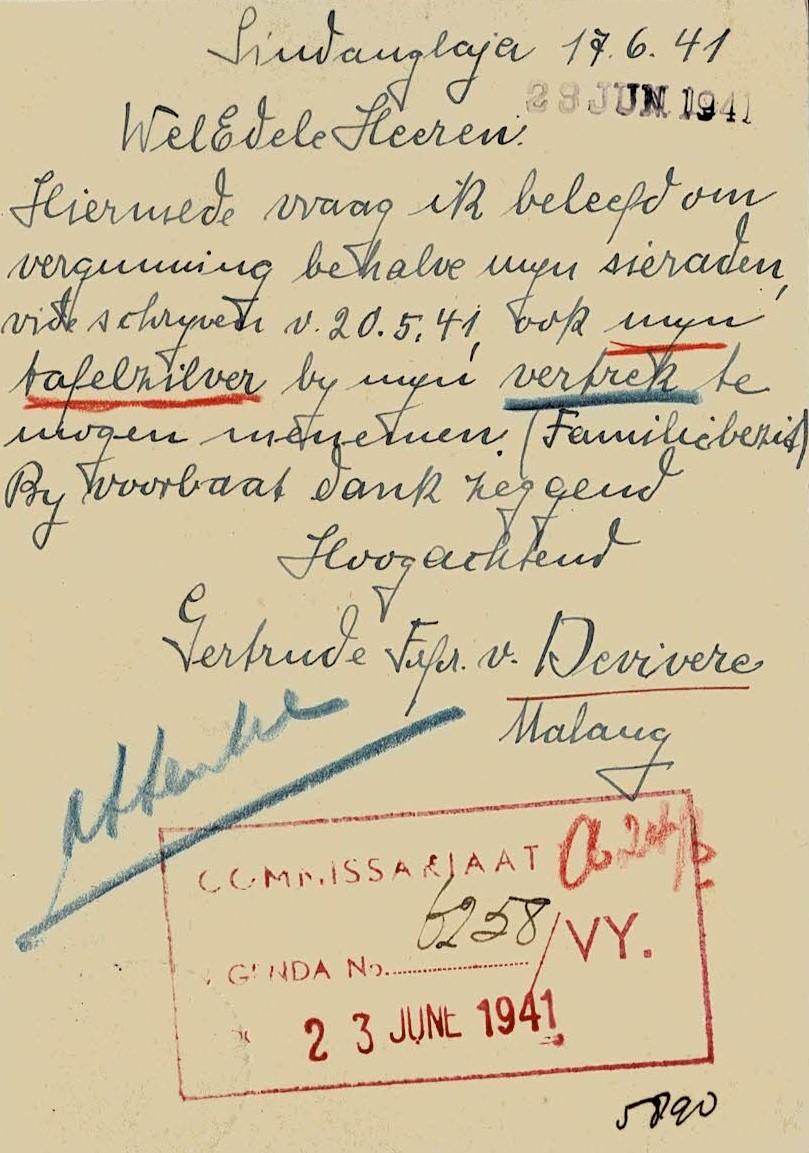 Sindanglaja 17.6.41
28 JUN 1941
WelEdele Heeren.
Hiermede vraag ik beleefd om
vergunning behalve myn sieraden,
vide schryven v. 20.5.41, ook myn
tafelzilver by myn vertrek te
mogen menemen. (Familiebezit)
By voorbaat dank zeggend
Hoogachtend
Gertrude Frfr. v. Devivere
Malang
COMMISSARIAAT
6258/VY.
GENDA No.
23 JUNE 1941
5890